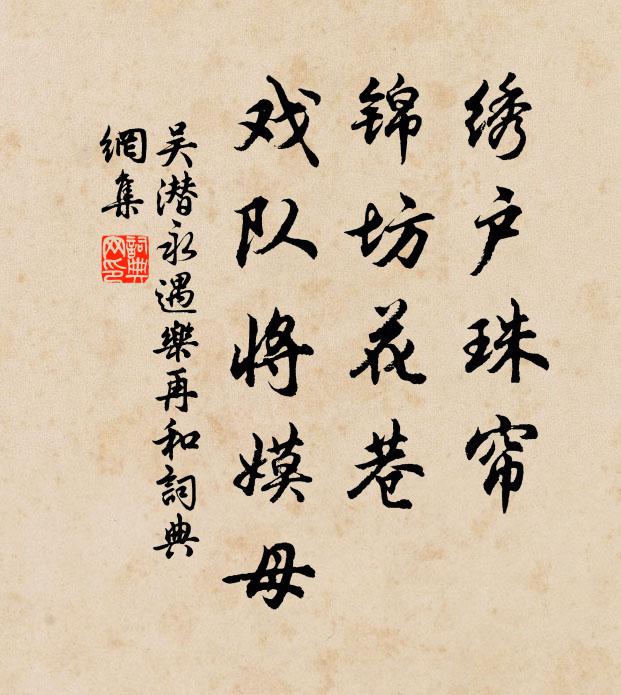 绣户珠帘
锦坊花巷
戏队将嫫母
吴潜永遇樂再和詞典
網集
詞典
网印